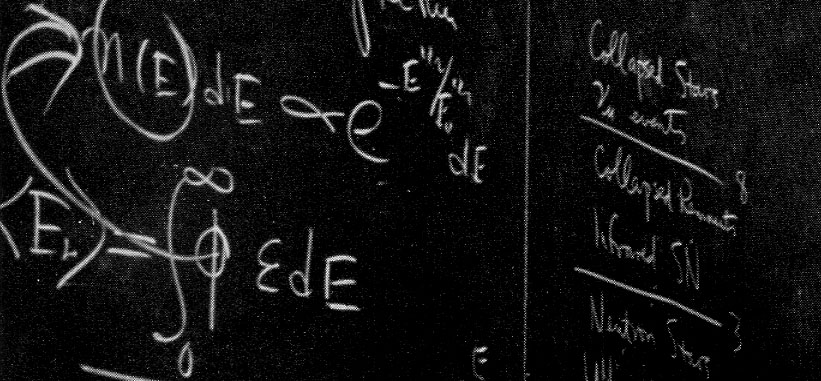 n(E)dE ∝ e^{-E^{1/2}/E_0^{1/2}} dE
⟨E_L⟩ = ∫_0^∞ φ ε dE
E
Collapsed Stars
events
8
Collapsed Remnants
Infrared SN
3
Neutron Stars